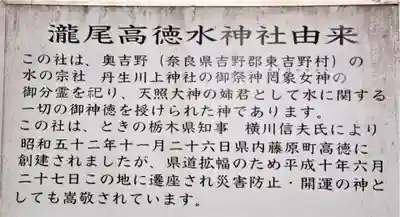 瀧尾高徳水神社由来
この社は、奥吉野（奈良県吉野郡東吉野村）の
水の宗社 丹生川上神社の御祭神罔象女神の
御分霊を祀り、天照大神の姉君として水に関する
一切の御神徳を授けられた神であります。
この社は、ときの栃木県知事 横川信夫氏により
昭和五十二年十一月二十六日県内藤原町高徳に
創建されましたが、県道拡幅のため平成十年六月
二十七日この地に遷座され災害防止・開運の神と
しても崇敬されています。